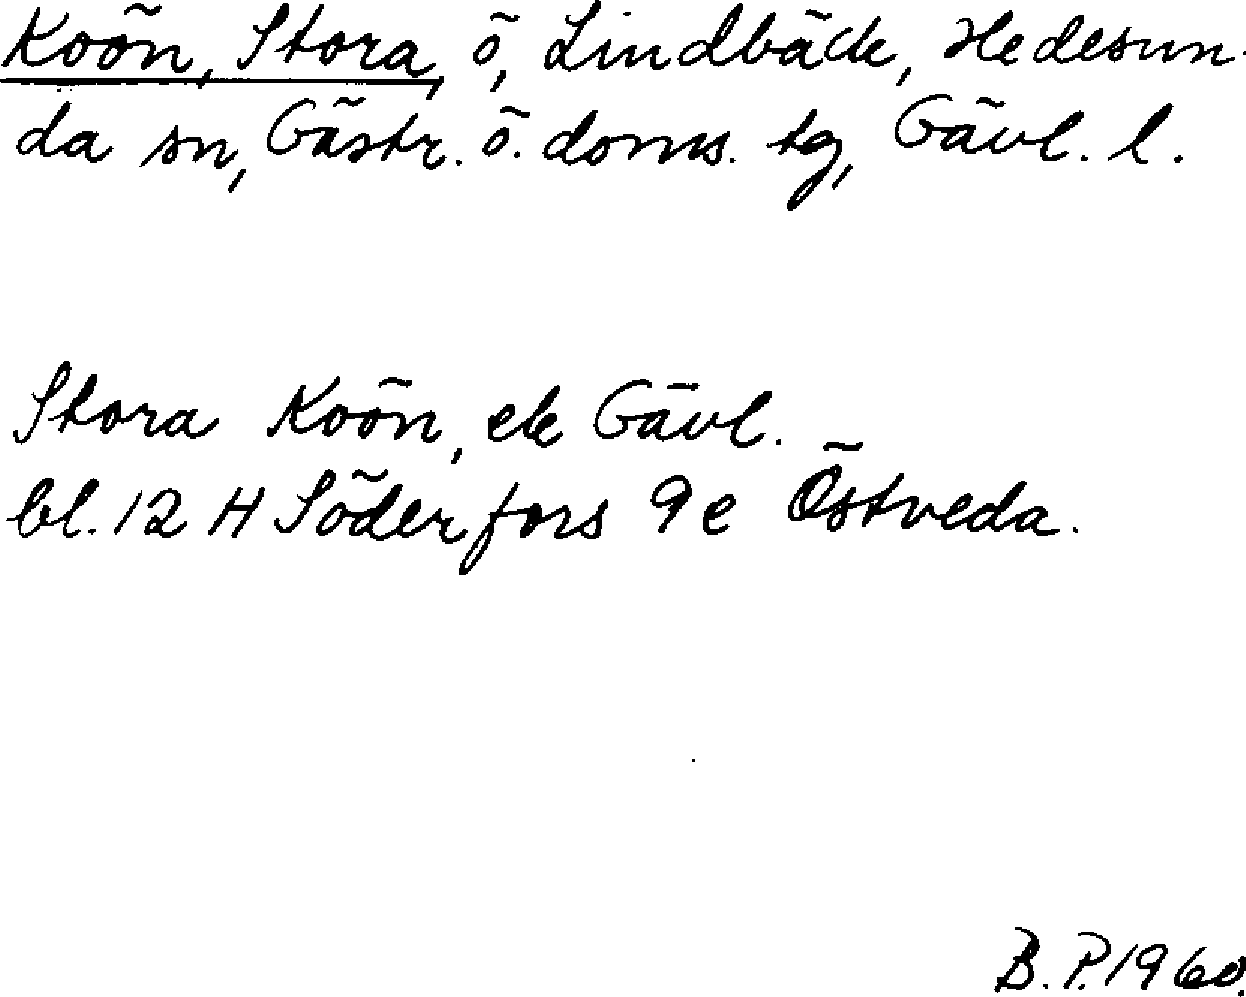 Koön, Stora, ö, Lindbäck, Hedesun-
da sn, Gästr. ö. doms. tg, Gävl. l.
Stora Koön, ek Gävl.
bl. 12 H Söderfors 9e Östveda.
B. P. 1960.